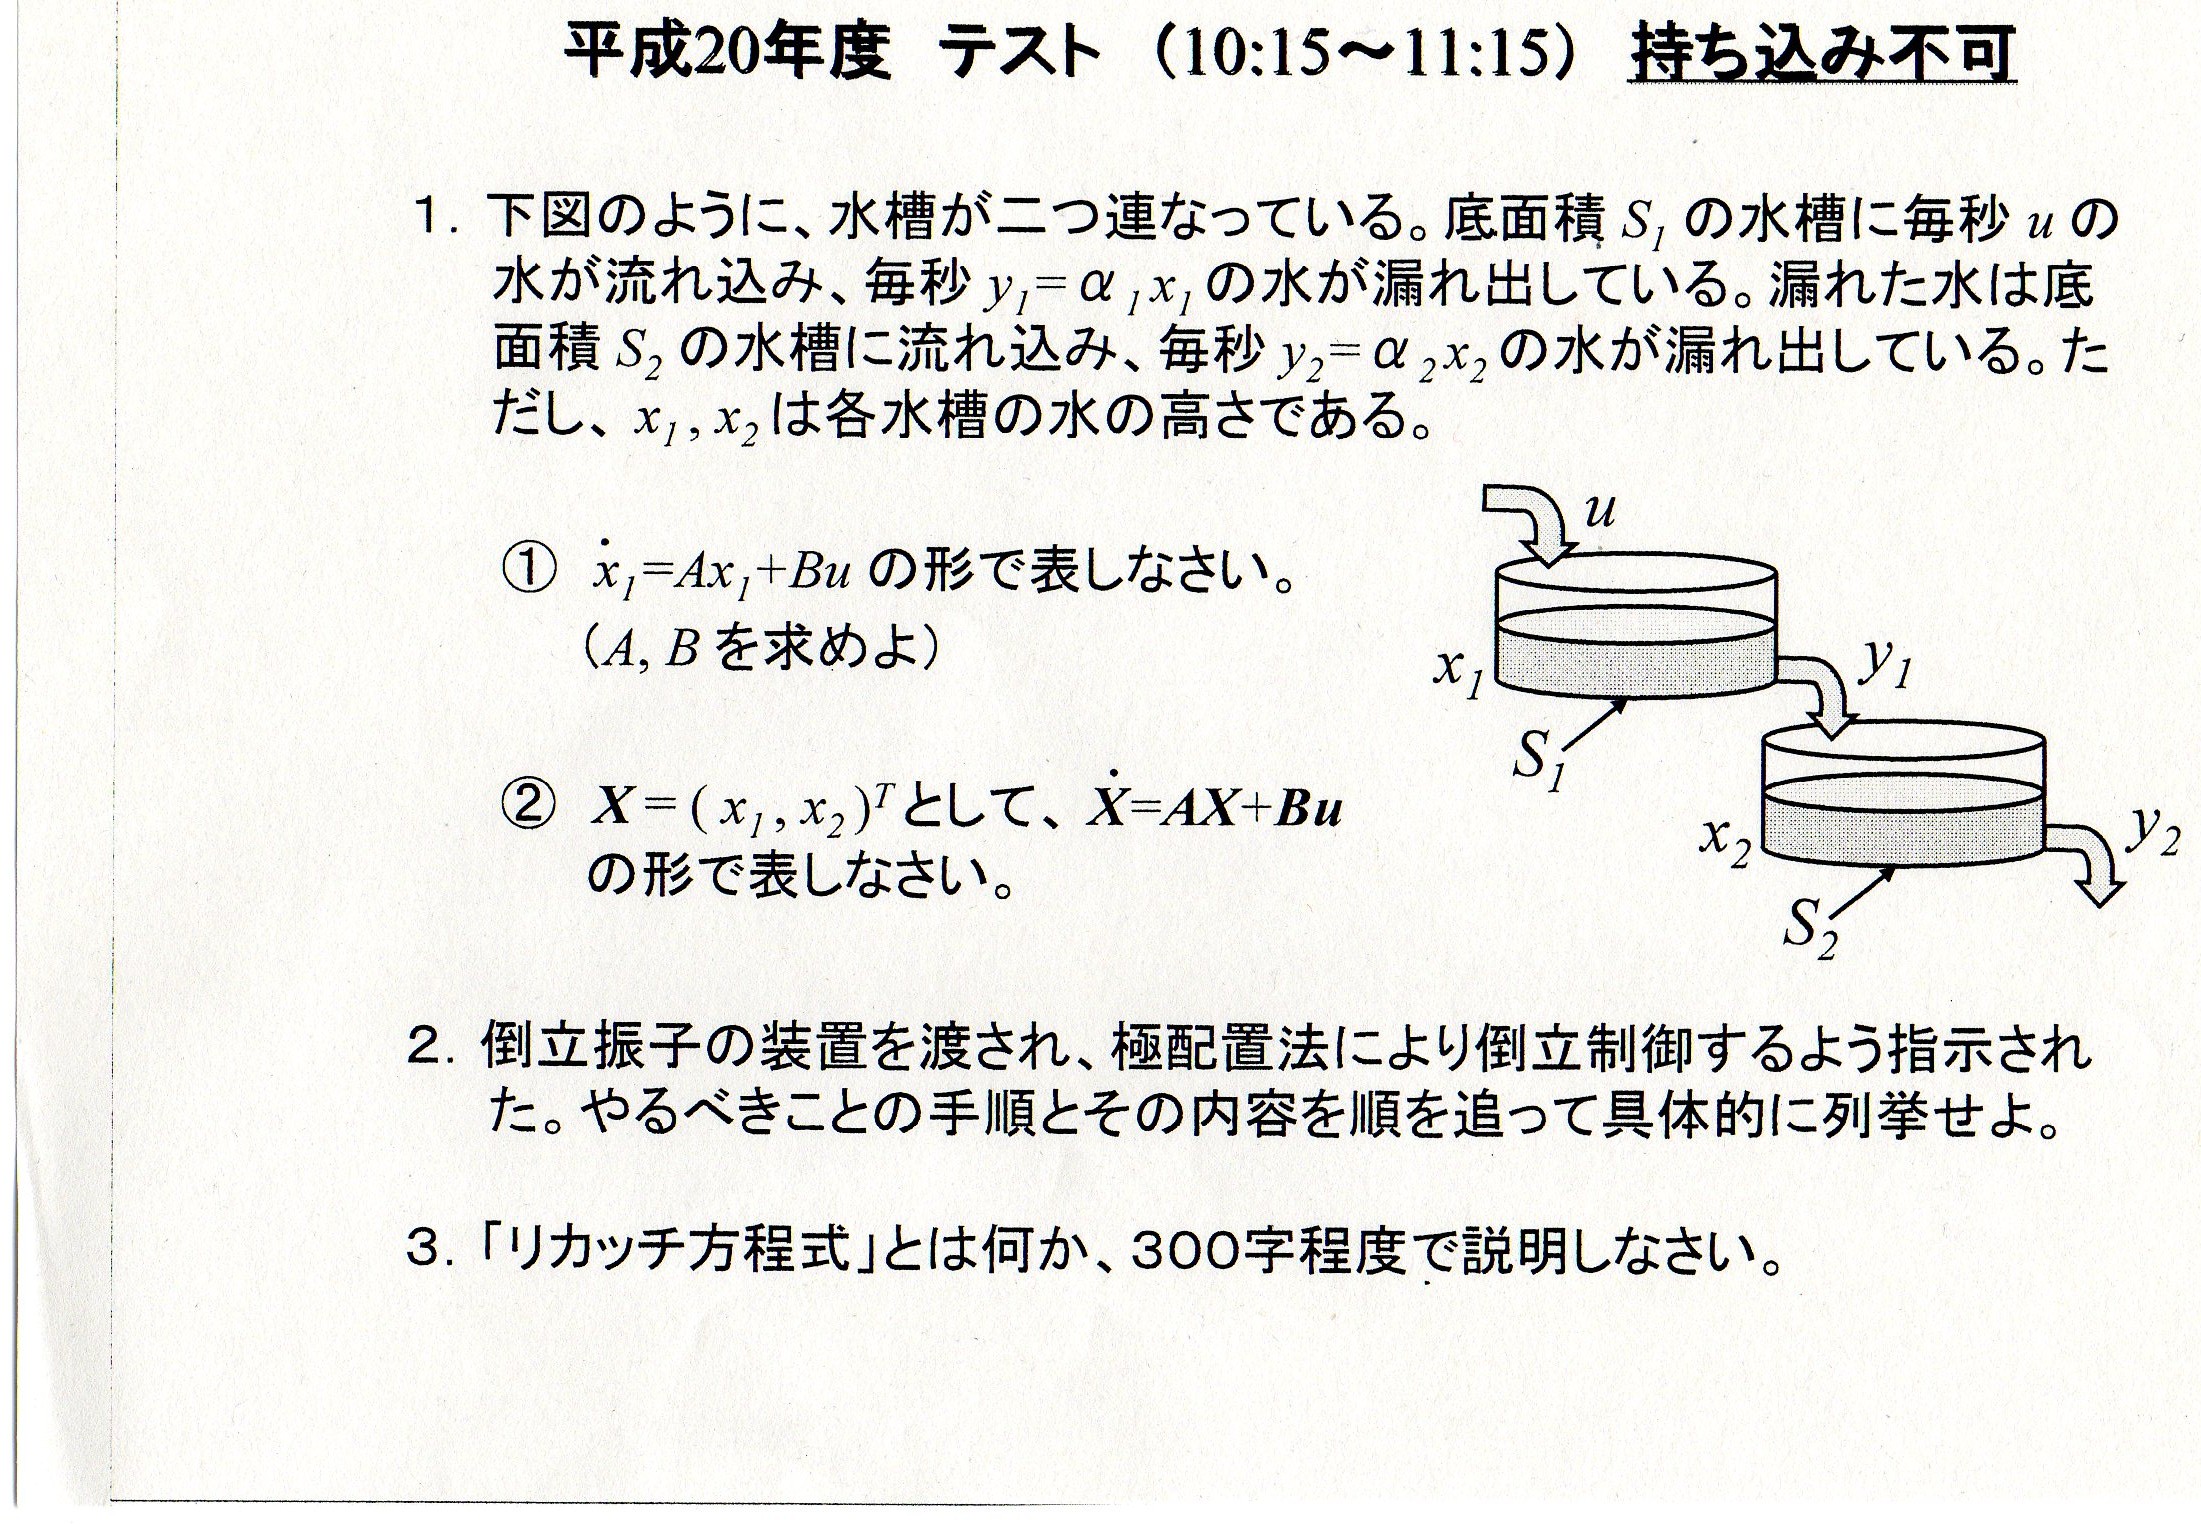 平成20年度 テスト （10:15～11:15） 持ち込み不可
１．下図のように、水槽が二つ連なっている。底面積 S₁ の水槽に毎秒 u の
水が流れ込み、毎秒 y₁=α₁x₁ の水が漏れ出している。漏れた水は底
面積 S₂ の水槽に流れ込み、毎秒 y₂=α₂x₂ の水が漏れ出している。た
だし、x₁, x₂ は各水槽の水の高さである。
① ẋ₁=Ax₁+Bu の形で表しなさい。
（A, B を求めよ）
② X=( x₁, x₂ )ᵀ として、Ẋ=AX+Bu
の形で表しなさい。
u
x₁
y₁
S₁
x₂
y₂
S₂
２．倒立振子の装置を渡され、極配置法により倒立制御するよう指示され
た。やるべきことの手順とその内容を順を追って具体的に列挙せよ。
３．「リカッチ方程式」とは何か、３００字程度で説明しなさい。